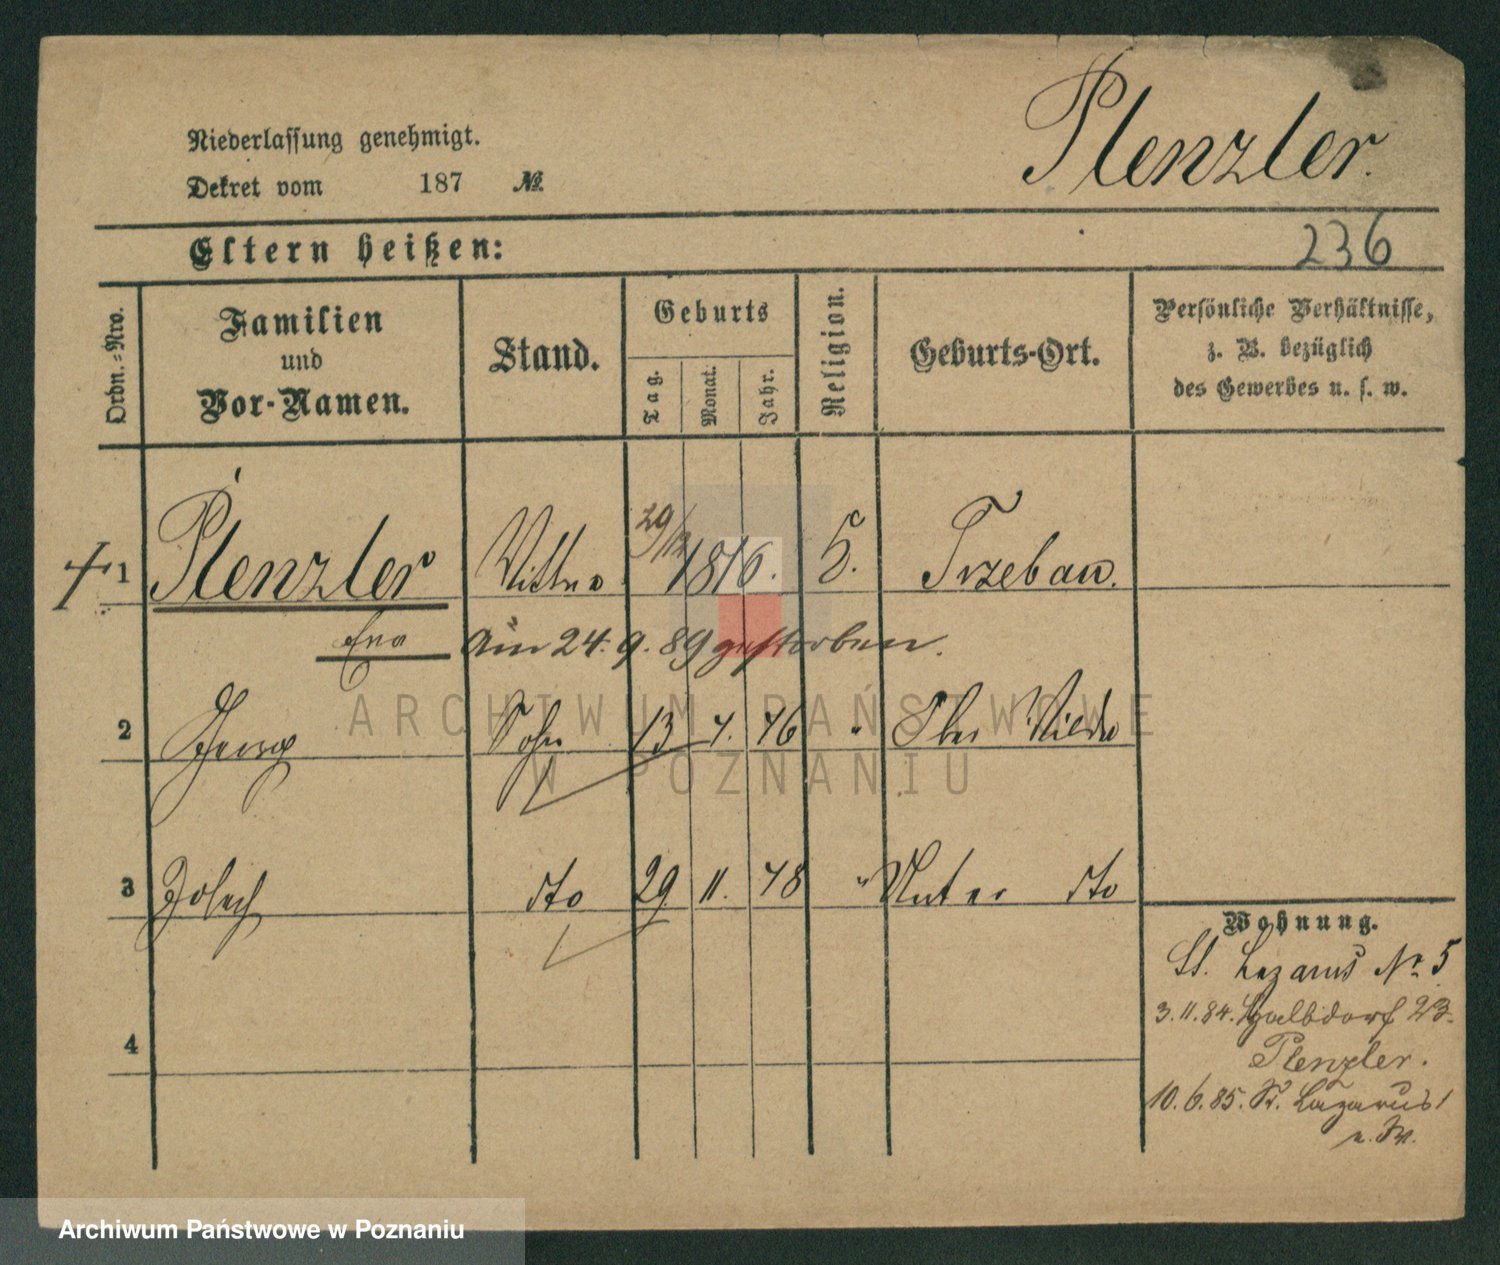 Plenzler.
Niederlassung genehmigt.
Dekret vom 187 №
236
Eltern heißen:
Ordn.=Nro.
Familien
und
Vor-Namen.
Stand.
Geburts
Tag.
Monat.
Jahr.
Religion.
Geburts-Ort.
Persönliche Verhältnisse,
z. B. bezüglich
des Gewerbes u. s. w.
1 Plenzler 29/12 1816. Trzebaw.
Eva Am 24. 9. 89 gestorben.
2 Georg Sohn 13 4. 46 " Ober Wilda
3 dto 29 11. 48 " Unter dto
4
Wohnung.
St. Lazarus Nr 5
3.11.84. 23.
Plenzler.
10.6.85. St. Lazarus 1
ARCHIWUM PAŃSTWOWE
W POZNANIU
Archiwum Państwowe w Poznaniu